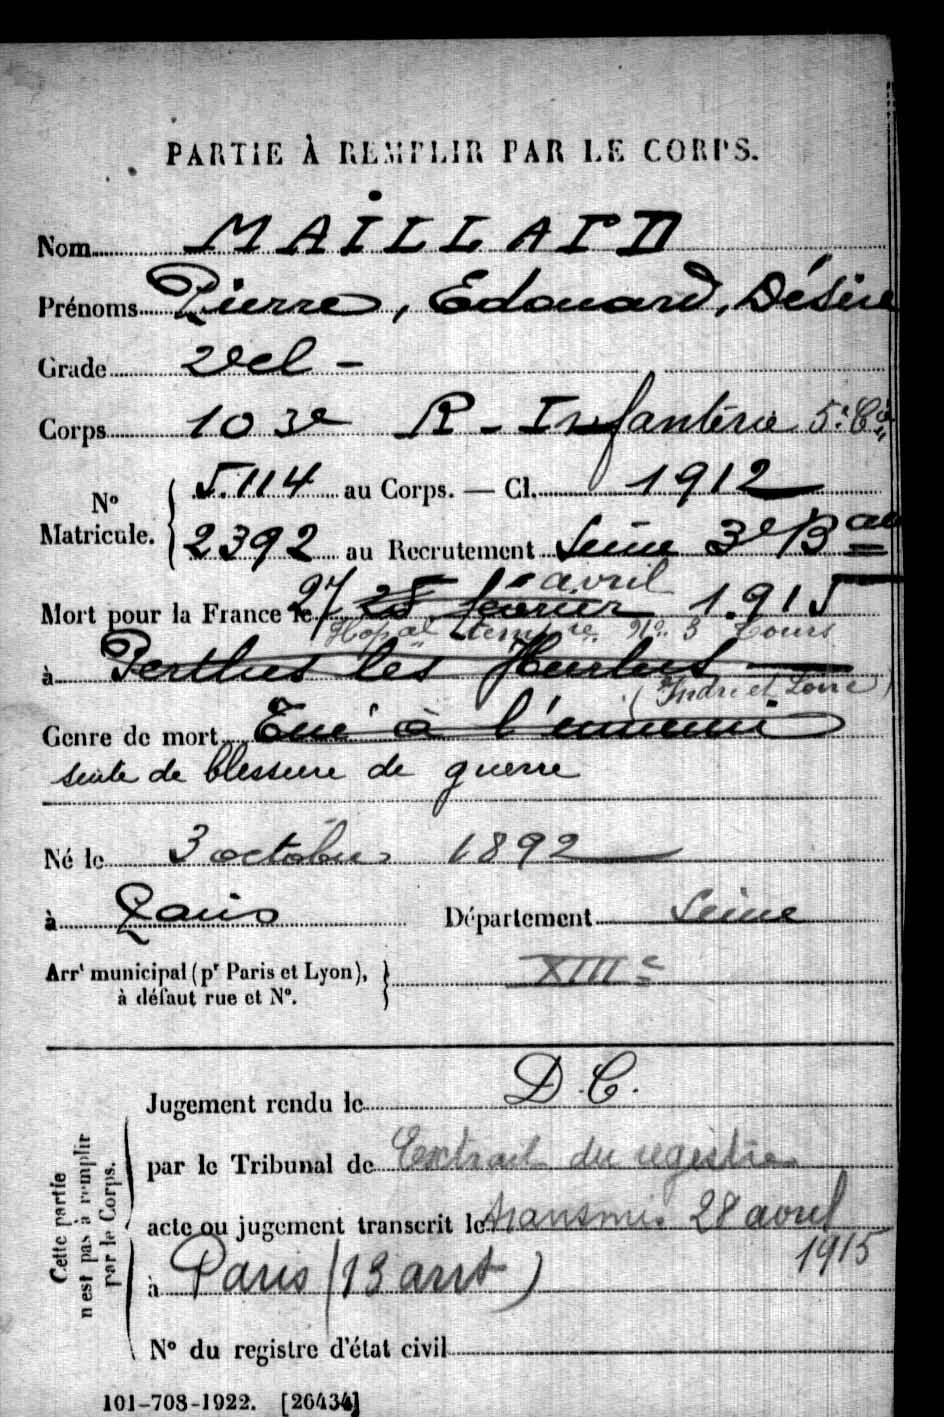 PARTIE À REMPLIR PAR LE CORPS.
Nom MAILLARD
Prénoms Pierre, Edouard, Désiré
Grade 2e cl -
Corps 103e R - Infanterie 5e Cie
N° Matricule. { 5.114 au Corps. — Cl. 1912
2392 au Recrutement Seine 3e Bau
avril
Mort pour la France le 27 25 février 1.915
Hopal tempre N° 3 Tours
à Perthes les Hurlus
(Indre et Loire)
Genre de mort Tué à l'ennemi
suite de blessure de guerre
Né le 3 octobre 1892
à Paris Département Seine
Arrt municipal (pr Paris et Lyon), à défaut rue et N°. } XIIIe
Cette partie n'est pas à remplir par le Corps.
Jugement rendu le D.C.
par le Tribunal de Extrait du registre
acte ou jugement transcrit le transmis 28 avril
1915
à Paris (13 arrt)
N° du registre d'état civil
101-708-1922. [26434]